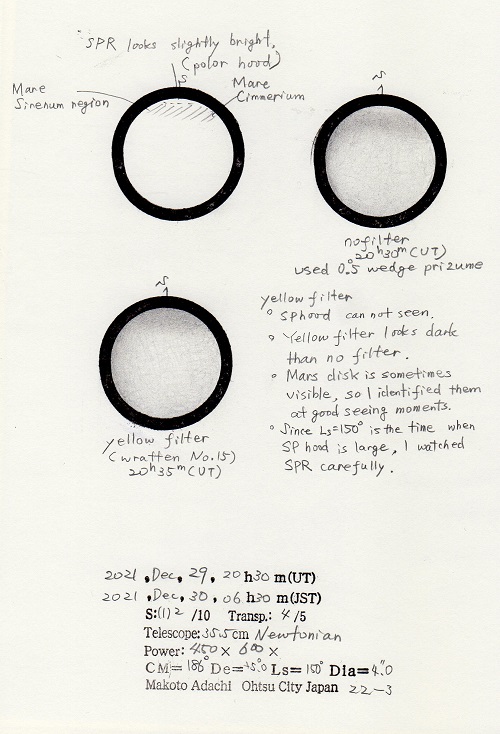 SPR looks slightly bright,
(polor hood)
S
Mare
Sirenum region
Mare
Cimmerium
S
nofilter
20h30m(UT)
used 0.°5 wedge prizume
S
yellow filter
(wratten No.15)
20h35m(UT)
yellow filter
° SPhood can not seen.
° Yellow filter looks dark
than no filter.
° Mars disk is sometimes
visible, so I identified them
at good seeing moments.
° Since Ls=150° is the time when
SP hood is large, I watched
SPR carefully.
2021 , Dec, 29, 20 h30 m(UT)
2021 , Dec, 30, 06 h30 m(JST)
S:(1) 2 /10 Transp.: 4 /5
Telescope: 35.5cm Newtonian
Power: 450× 600×
CM= 186° De= +5.°0 Ls= 150° Dia= 4."0
Makoto Adachi Ohtsu City Japan 22-3